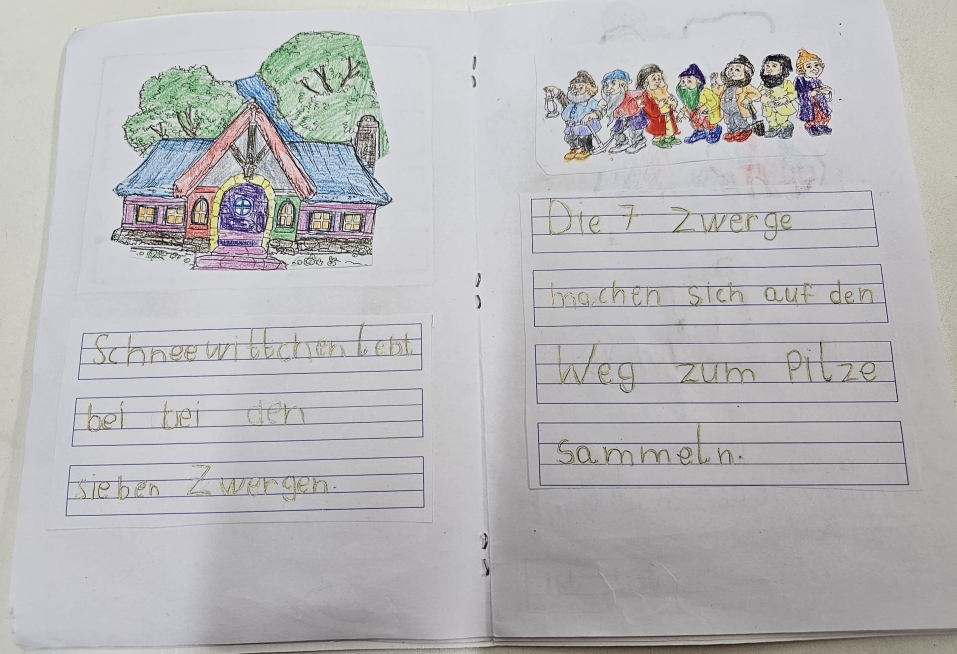 Schneewittchen lebt
bei bei den
sieben Zwergen.
Die 7 Zwerge
machen sich auf den
Weg zum Pilze
sammeln.